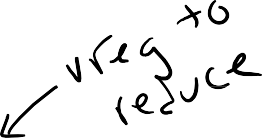 vreg to
reduce